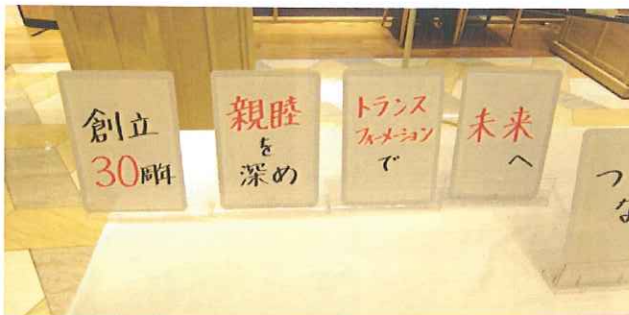 創立
30周年
親睦
を
深め
トランス
フォーメーション
で
未来
へ
つ
な